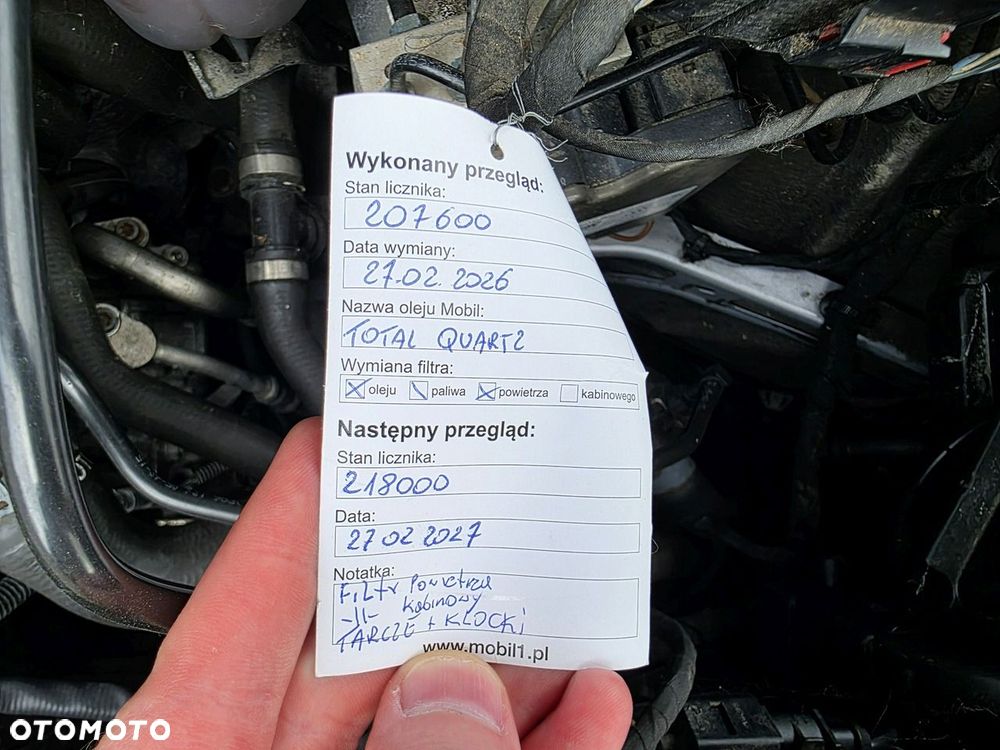 Wykonany przegląd:
Stan licznika:
207600
Data wymiany:
27.02.2026
Nazwa oleju Mobil:
TOTAL QUARTZ
Wymiana filtra:
oleju paliwa powietrza kabinowego
Następny przegląd:
Stan licznika:
218000
Data:
27 02 2027
Notatka:
FiLtr Powietrza
-||- kabinowy
TARCZE + KLOCKi
www.mobil1.pl
OTOMOTO